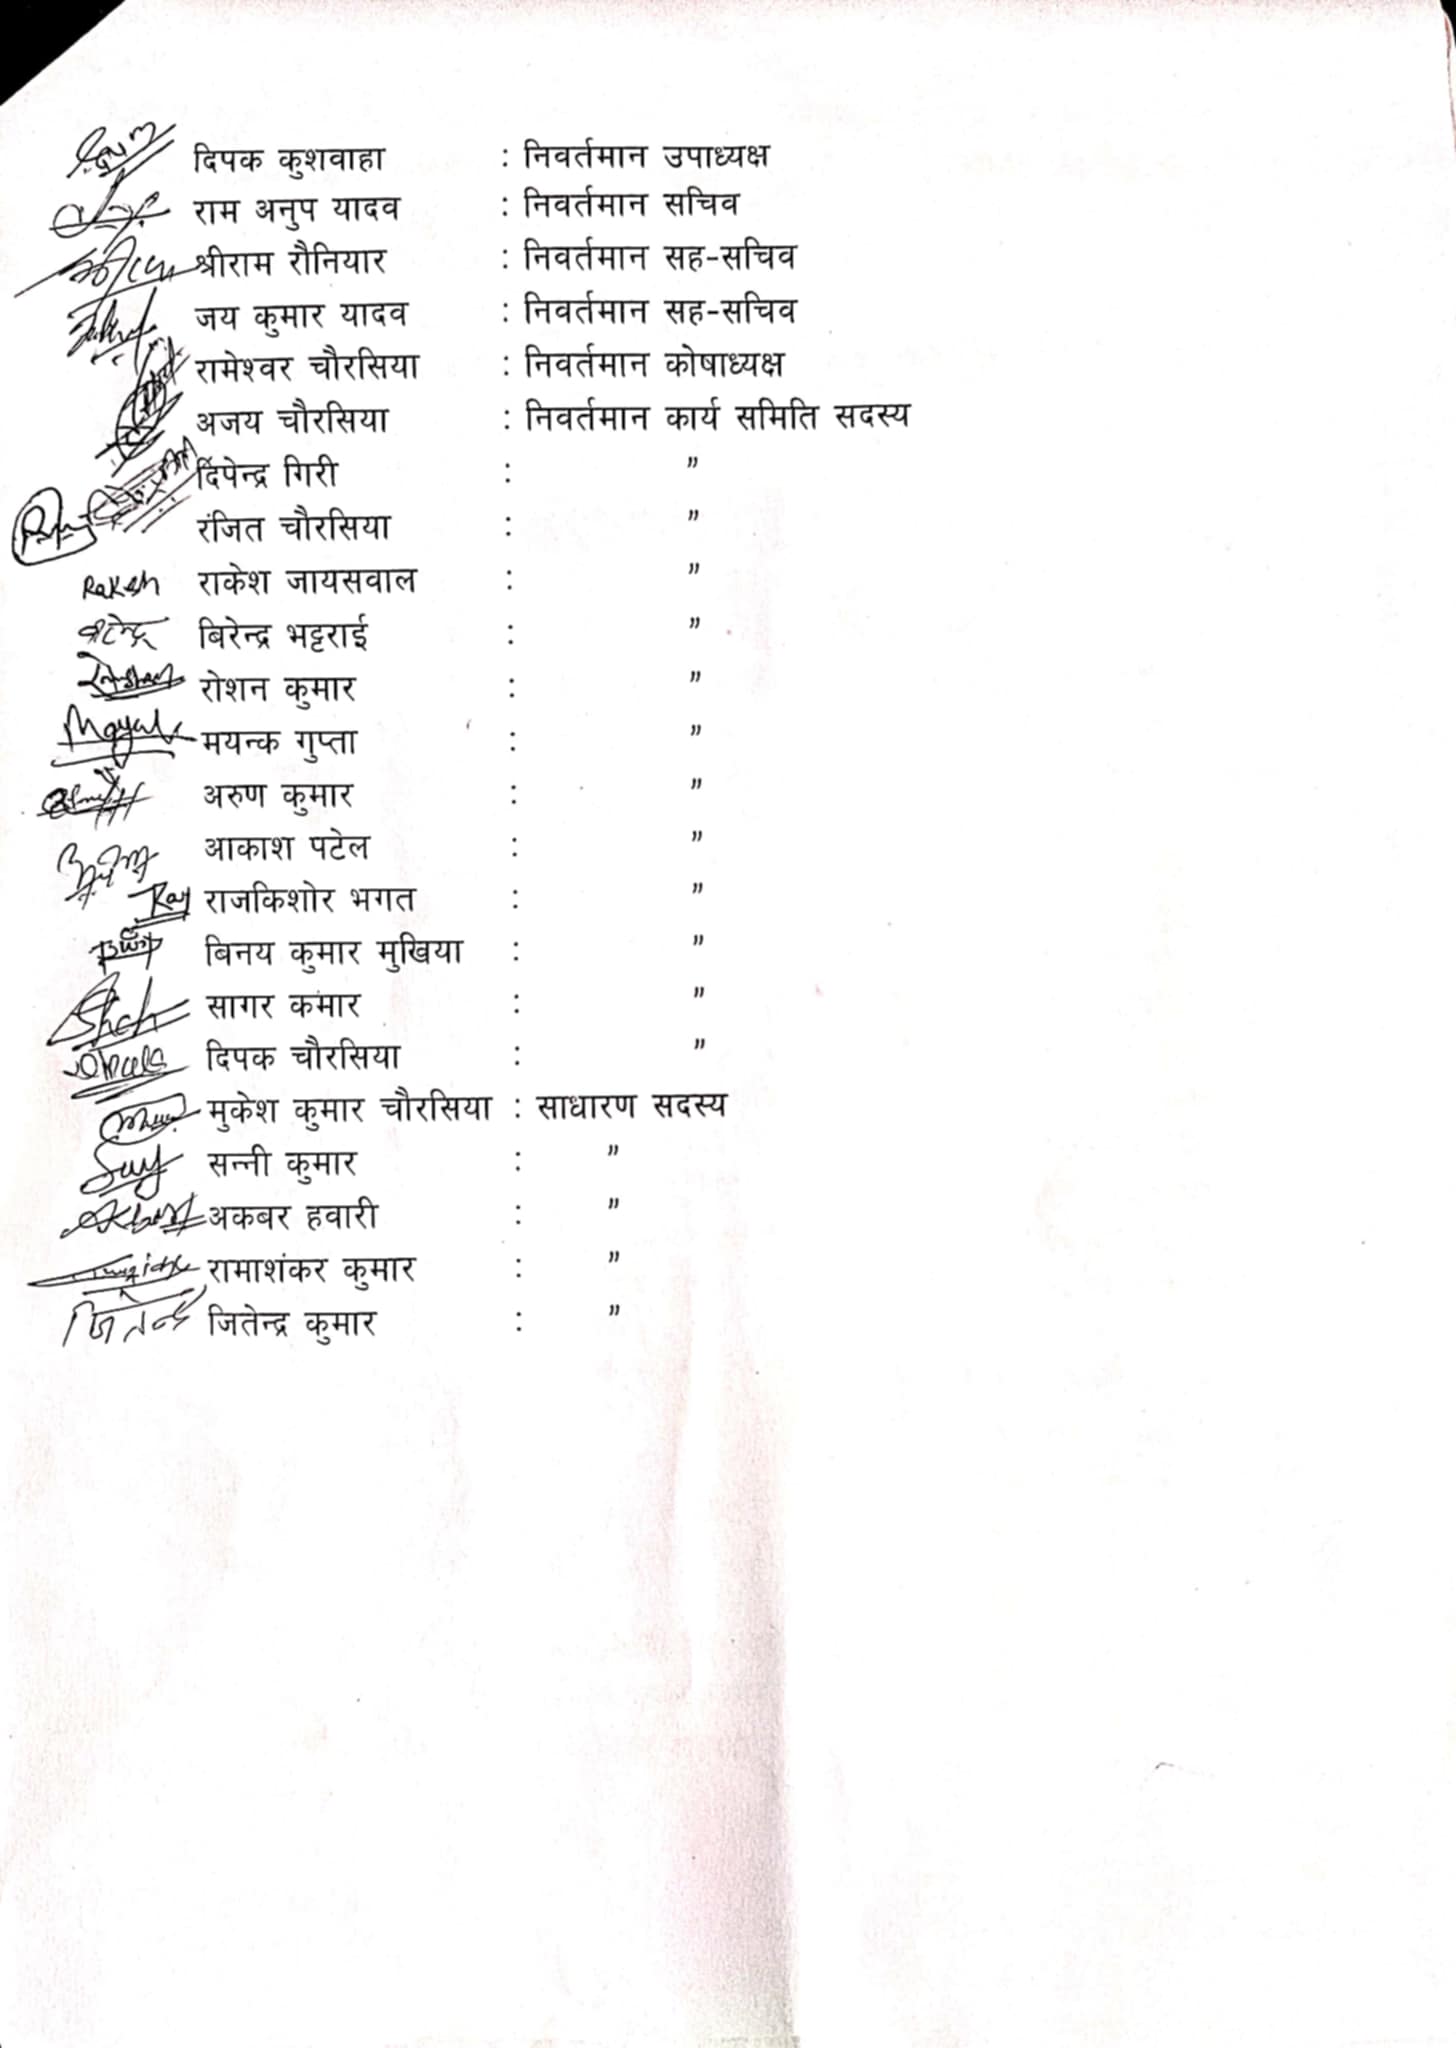 दिपक कुशवाहा : निवर्तमान उपाध्यक्ष
राम अनुप यादव : निवर्तमान सचिव
श्रीराम रौनियार : निवर्तमान सह-सचिव
जय कुमार यादव : निवर्तमान सह-सचिव
रामेश्वर चौरसिया : निवर्तमान कोषाध्यक्ष
अजय चौरसिया : निवर्तमान कार्य समिति सदस्य
दिपेन्द्र गिरी : ”
रंजित चौरसिया : ”
Rakesh राकेश जायसवाल : ”
बिरेन्द्र भट्टराई : ”
रोशन कुमार : ”
मयन्क गुप्ता : ”
अरुण कुमार : ”
आकाश पटेल : ”
Raj राजकिशोर भगत : ”
बिनय कुमार मुखिया : ”
सागर कमार : ”
दिपक चौरसिया : ”
मुकेश कुमार चौरसिया : साधारण सदस्य
सन्नी कुमार : ”
अकबर हवारी : ”
रामाशंकर कुमार : ”
जितेन्द्र कुमार : ”